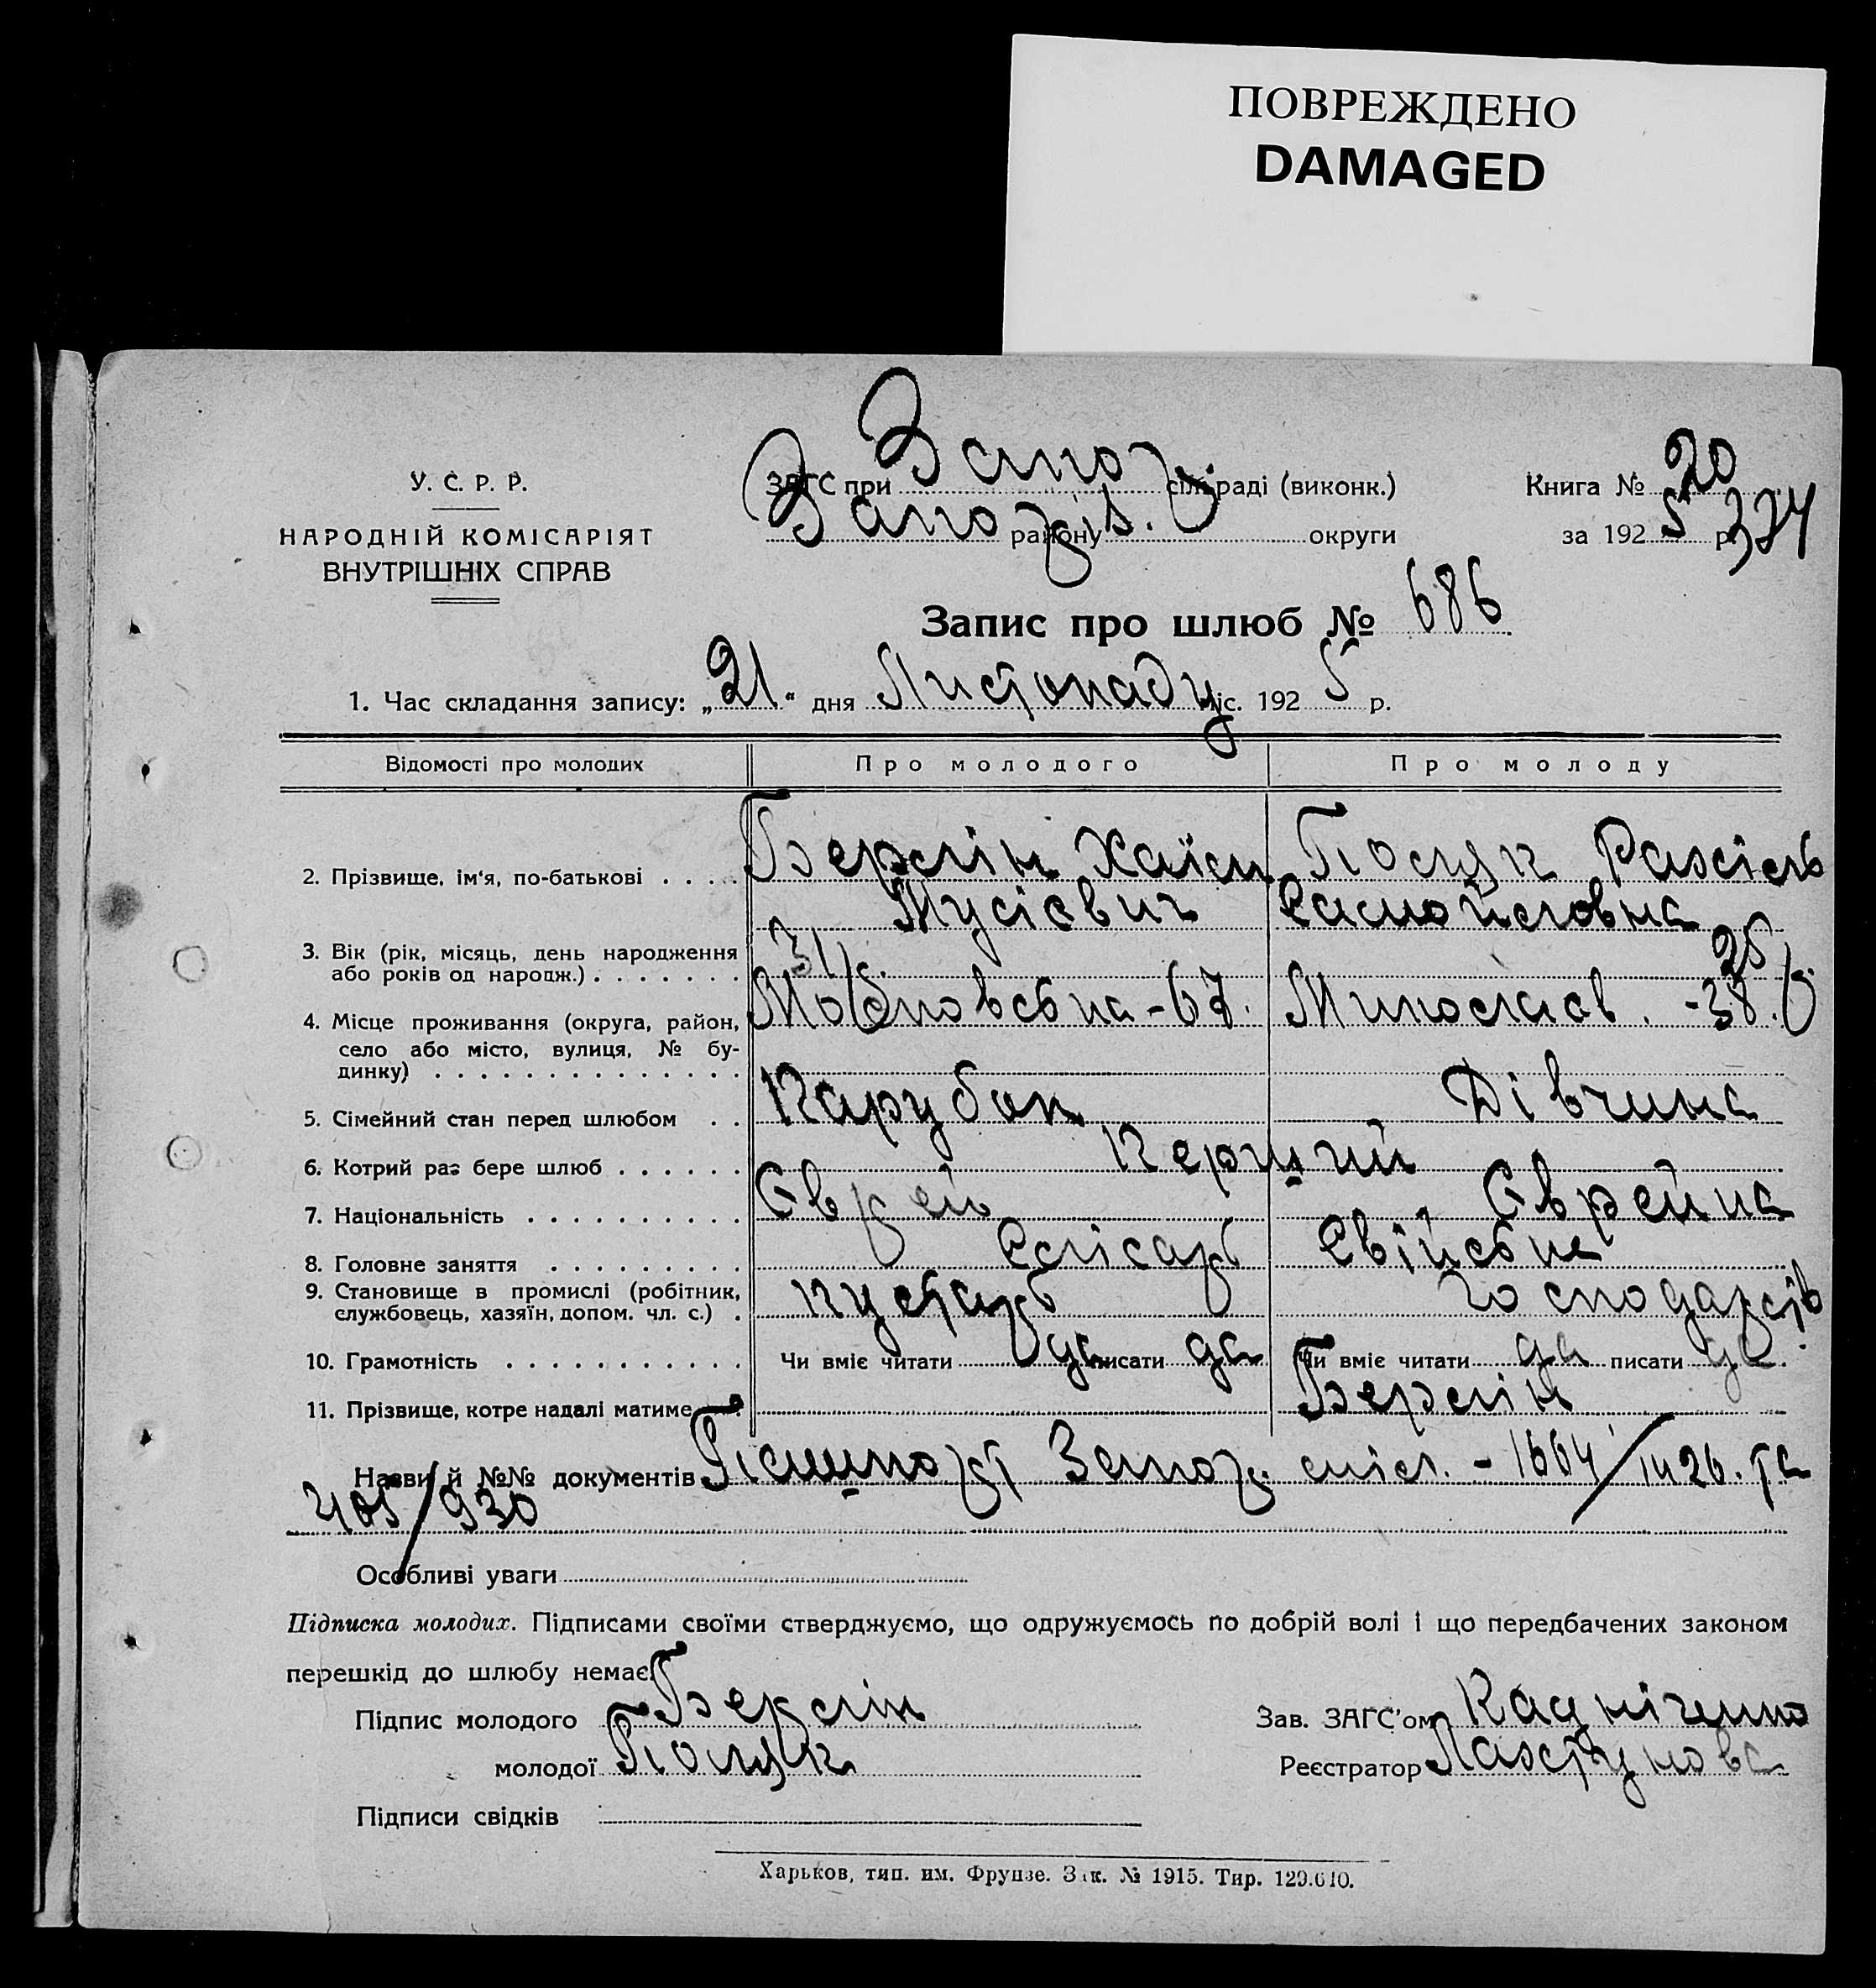 ПОВРЕЖДЕНО
DAMAGED
У. С. Р. Р.
НАРОДНІЙ КОМІСАРІЯТ
ВНУТРІШНІХ СПРАВ
ЗАГС при Запоз. сіль раді (виконк.)
району округи
Книга № 20
за 1925 р. 374
Запис про шлюб № 686
1. Час складання запису: „21“ дня Листопаду міс. 1925 р.
Відомості про молодих Про молодого Про молоду
2. Прізвище, ім'я, по-батькові . . . . Берлін Хаїм Поляк Рахіль
Мусієвич Самойловна
3. Вік (рік, місяць, день народження
або років од народж.) . . . . . . . 31 25
4. Місце проживання (округа, район,
село або місто, вулиця, № бу-
динку) . . . . . . . . . . . . . . -67. -38.
5. Сімейний стан перед шлюбом . . Парубок Дівчина
6. Котрий раз бере шлюб . . . . . . Перший
7. Національність . . . . . . . . . . Єврей Єврейка
8. Головне заняття . . . . . . . . . Слісарь
9. Становище в промислі (робітник,
службовець, хазяїн, допом. чл. с.) . кустарь господарств
10. Грамотність . . . . . . . . . . . Чи вміє читати да писати да Чи вміє читати да писати да
11. Прізвище, котре надалі матиме Берлін
Назви й №№ документів Пашпорт Запоз. - 1664/ та
405/930
Особливі уваги
Підписка молодих. Підписами своїми стверджуємо, що одружуємось по добрій волі і що передбачених законом
перешкід до шлюбу немає.
Підпис молодого Берлін
молодої Поляк
Зав. ЗАГС'ом
Реєстратор
Підписи свідків
Харьков, тип. им. Фрунзе. Зак. № 1915. Тир. 129.610.